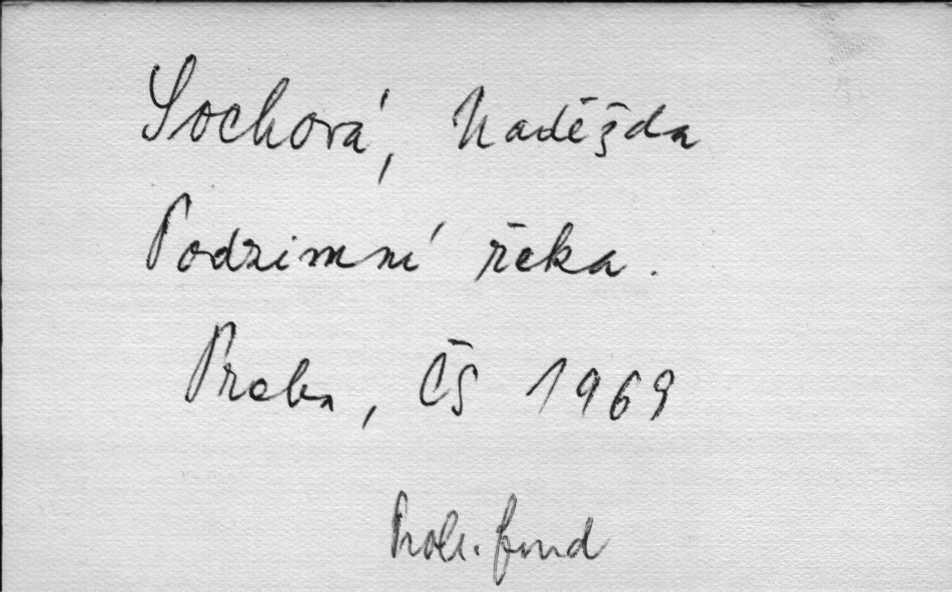 Sochová, Naděžda
Podzimní řeka.
Praha, ČS 1969
fond